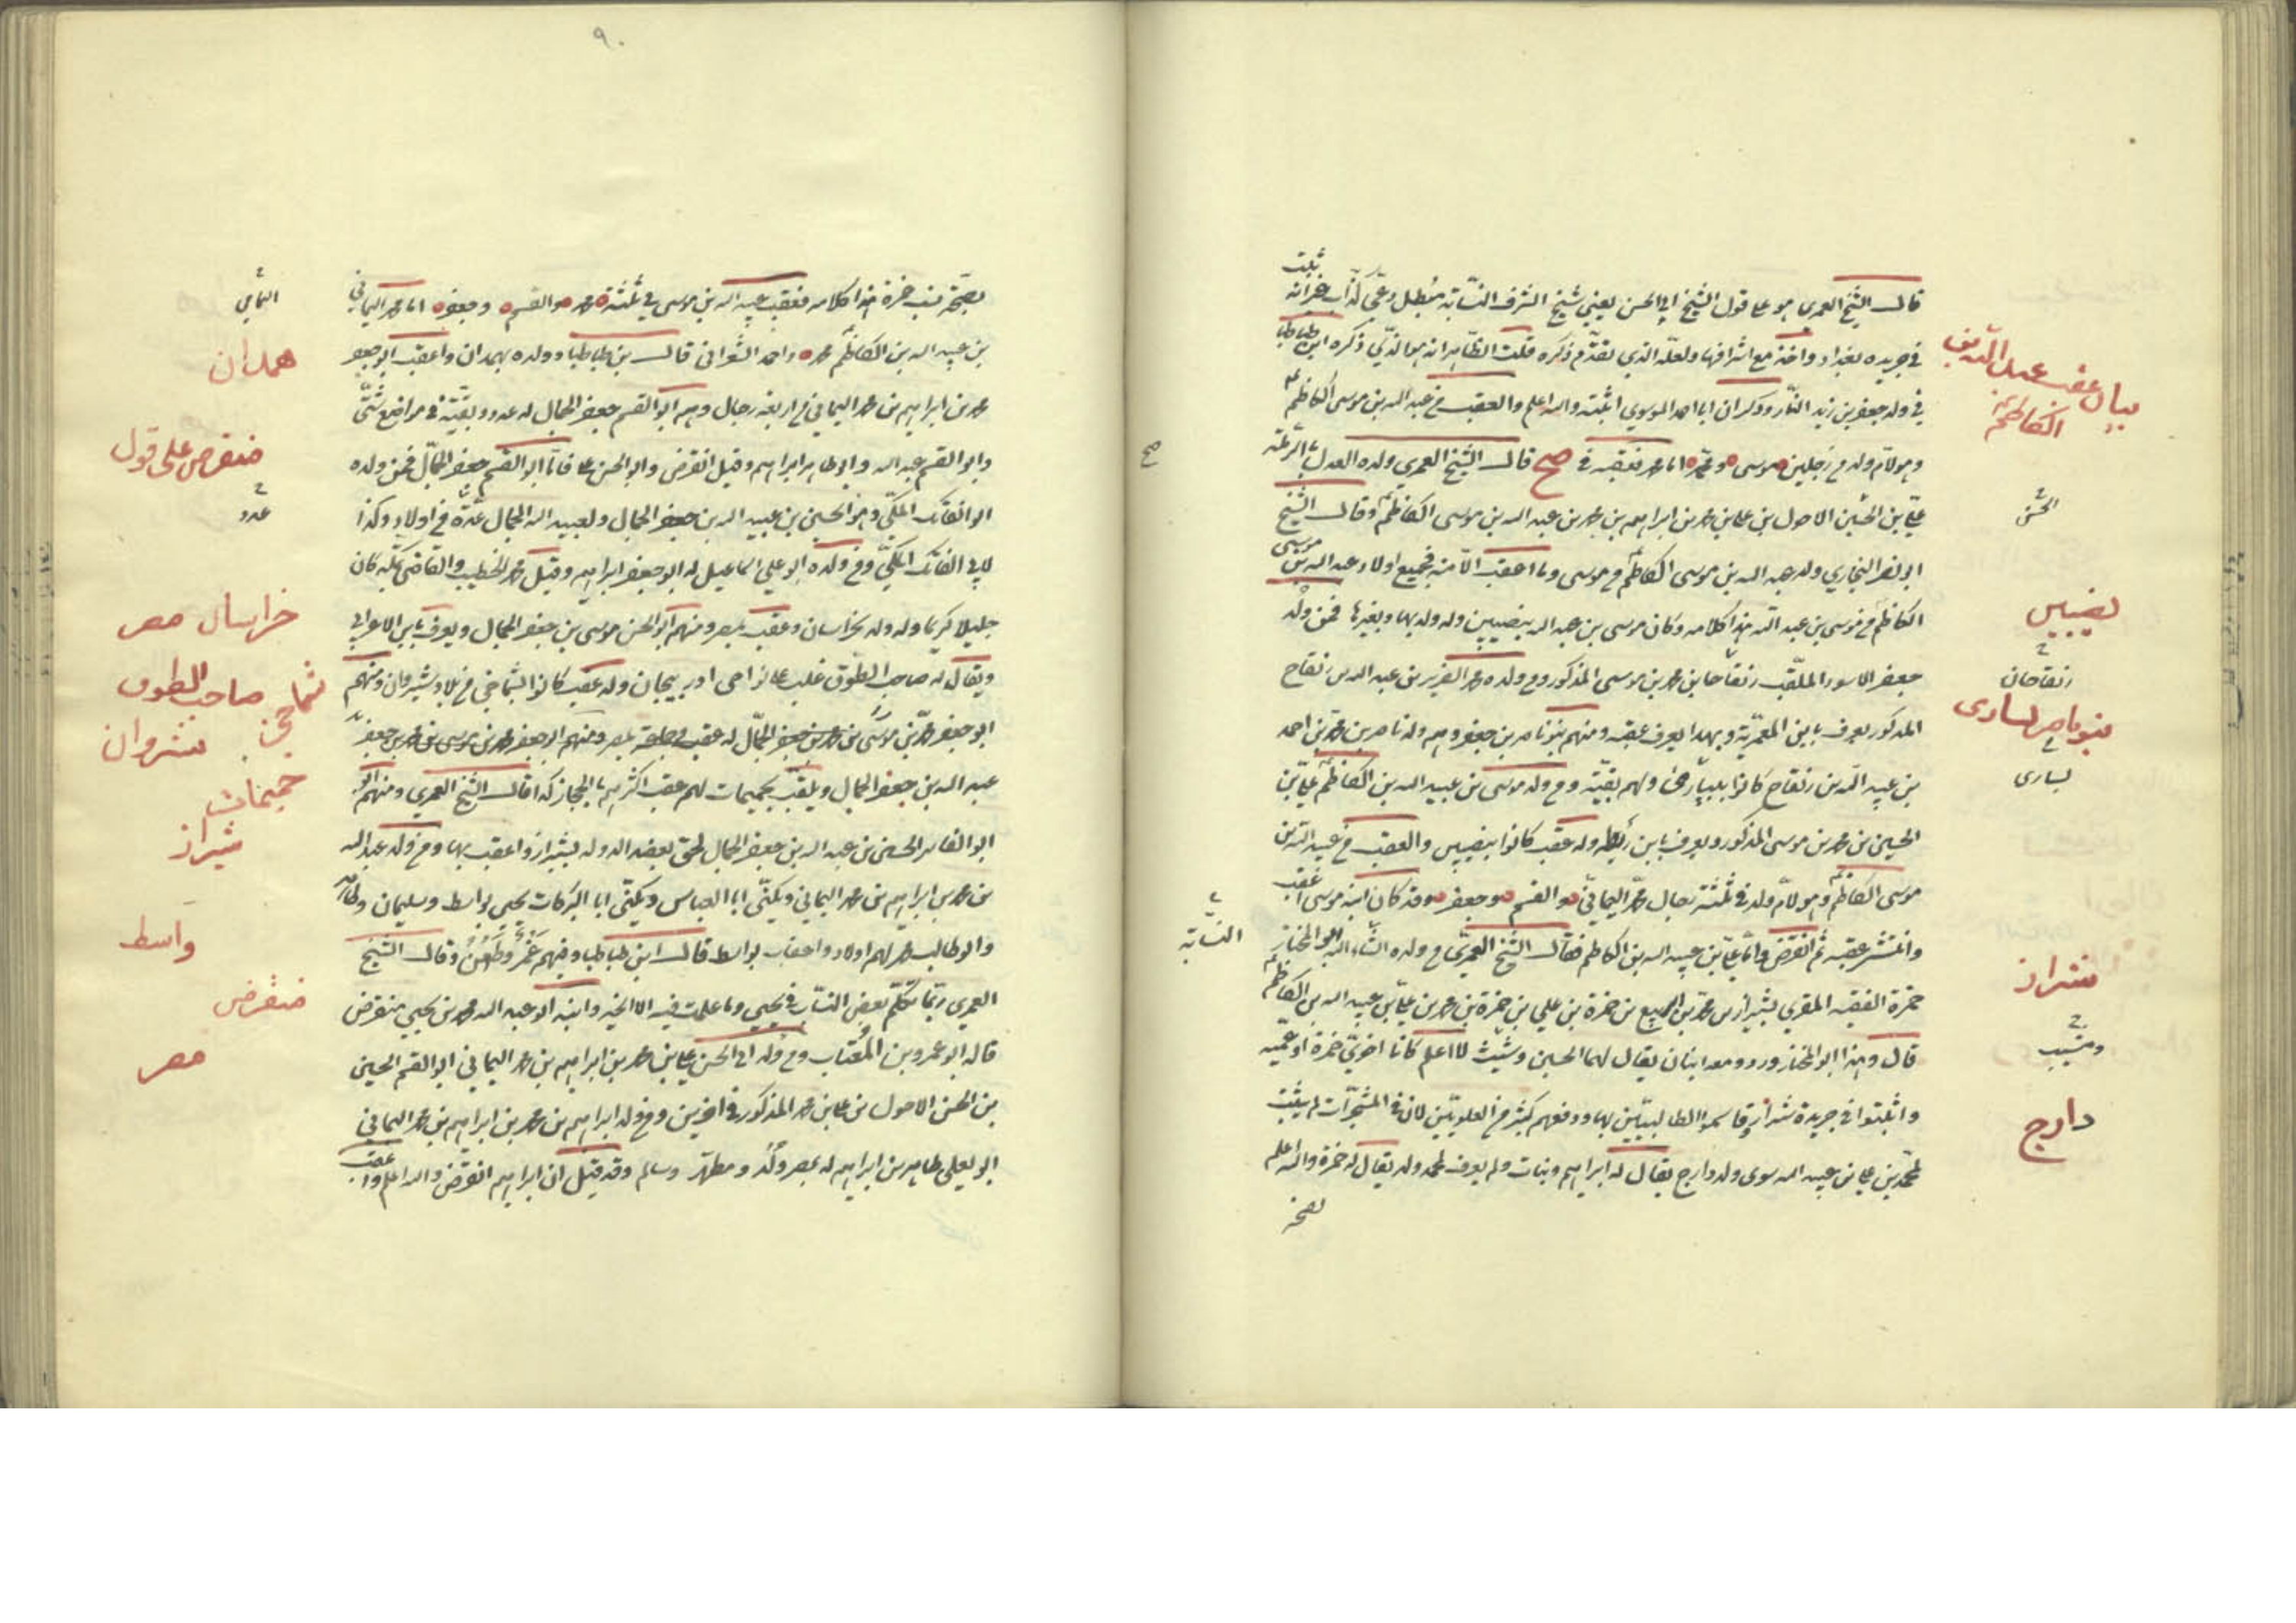 قال الشيخ العمرى هو على قول الشيخ ابى الحسن يعنى شيخ الشرف النسّابة مبطل دعىّ كذّاب غير انّه ثبت
فى جريدة بغداد واخذ مع اشرافها ولعلّه الذى تقدّم ذكره قلت الظاهر انه هو الذى ذكره ابن طباطبا
فى ولد جعفر بن زيد النار وذكر ان ابا احمد الموسوي اثبته والله اعلم والعقب من عبد الله بن موسى الكاظم
وهو لامّ ولد من رجلين موسى ومحمد اما محمد فعقبه فى صح قال الشيخ العمري ولده العدل بالرملة
علىّ بن الحسين الاحول بن على بن محمد بن ابراهيم بن محمد بن عبد الله بن موسى الكاظم وقال الشيخ
ابو نصر البخاري ولد عبد الله بن موسى الكاظم من موسى وما اعقب الّا منه فجميع اولاد عبد الله بن موسى
الكاظم من موسى بن عبد الله هذا كلامه وكان موسى بن عبد الله بنصيبين وله ولد بها وبغيرها فمن ولده
جعفر الاسود الملقّب زنقاحا بن محمد بن موسى المذكور ومن ولده محمد الضرير بن عبد الله بن زنقاح
المذكور يعرف بابن المعمريّة وبهذا يعرف عقبه ومنهم بنو ناصر بن جعفر وهم ولد ناصر بن محمد بن احمد
بن عبيد الله بن زنقاح كانوا ولهم بقيّة ومن ولد موسى بن عبيد الله بن الكاظم علىّ بن
الحسين بن محمد بن موسى المذكور ويعرف بابن ريطه وله عقب كانوا بنصيبين والعقب من عبيد الله بن
موسى الكاظم وهو لامّ ولد فى ثلثة رجال محمد اليمانىّ والقسم وجعفر وقد كان ابنه موسى اعقب
وانتشر عقبه ثم انقرض وامّا علىّ بن عبيد الله بن الكاظم فقال الشيخ العمرى من ولده ابو المختار
حمزة الفقيه المقري بشيراز بن حمزة بن علي بن حمزة بن محمد بن علىّ بن عبيد الله بن الكاظم
قال وهذا ابو المختار ورد ومعه ابنان يقال لهما الحسين وشيث لا اعلم كانا اخوىّ حمزة او عمّيه
واثبتوا فى جريدة شيراز وقاسموا الطالبيّين بها ودفعهم كثير من العلويّين لان فى المشجّرات لم يثبت
لمحمد بن على بن عبيد الله سوى ولد دارج يقال له ابراهيم وبنات ولم يعرف لمحمد ولد يقال له حمزة والله اعلم
بصحة
بيان عقب عبد الله بن
الكاظم
صح
الحسن
نصيبين
زنقاحان
بنو ناصر
النسّابة
شيراز
وشبيب
دارج
٩٠
بصحّة نسب حمزة هذا كلامه فعقب عبيد الله بن موسى فى ثلثة محمد والقسم وجعفر اما محمد اليمانى
بن عبيد الله بن الكاظم محمد واحمد الشعرانى قال ابن طباطبا وولده بهمدان واعقب ابو جعفر
محمد بن ابراهيم بن محمد اليمانى من اربعة رجال وهم ابو القسم جعفر الجمال له عدد وبقيّة فى مواضع شتّى
وابو القسم عبد الله وابو طاهر ابراهيم وقيل انقرض وابو الحسن على فامّا ابو القسم جعفر الجمّال فمن ولده
ابو الفاتك المكّى وهو الحسين بن عبيد الله بن جعفر الجمال ولعبيد الله الجمال عدّة من اولاد وكذا
لابى الفاتك المكّى ومن ولده ابو علي اسماعيل له ابو جعفر ابراهيم وقيل محمد الخطيب والقاضى بمكة كان
جليلا كريما وله ولد بخراسان وعقب بمصر ومنهم ابو الحسن موسى بن جعفر الجمال ويعرف بابن الاعرابى
ويقال له صاحب الطوق غلب على نواحى اذربيجان وله عقب كانوا الشماخى من بلاد شيروان ومنهم
ابو جعفر محمد بن موسى بن محمد بن جعفر الجمّال له عقب وجماعة بمصر ومنهم ابو جعفر محمد بن موسى بن محمد بن جعفر بن
عبد الله بن جعفر الجمال ويلقب بجميمات لهم عقب اكثرهم بالحجاز كذا قال الشيخ العمري ومنهم
ابو الفاتك الحسين بن عبد الله بن جعفر الجمال لحق بعضد الدولة بشيراز واعقب بها ومن ولد عبد الله
بن محمد بن ابراهيم بن محمد اليماني ويكنّى ابا العباس ويكنّى ابا البركات يحيى بواسط وسليمان وطاهر
وابو طالب محمد لهم اولاد واعقاب بواسط قال ابن طباطبا وفيهم غمز وطعن وقال الشيخ
العمري ربّما تكلّم بعض النسّاب فى يحيى وما علمت فيه الا الخير وابنه ابو عبد الله محمد بن يحيى منقرض
قاله ابو عمرو بن المنتاب ومن ولد ابى الحسن على بن محمد بن ابراهيم بن محمد اليماني ابو القسم الحسين
بن الحسن الاحول بن على بن محمد المذكور فى اخرين ومن ولد ابراهيم بن محمد بن ابراهيم بن محمد اليماني
ابو يعلى طاهر بن ابراهيم له بمصر ولد ومطهّر وسالم وقد قيل ان ابراهيم انقرض والله اعلم واعقب
اليمامى
همدان
منقرض على قول
عدد
خراسان مصر
صاحب الطوق
شماخى
شروان
جميمات
شيراز
واسط
منقرض
مصر